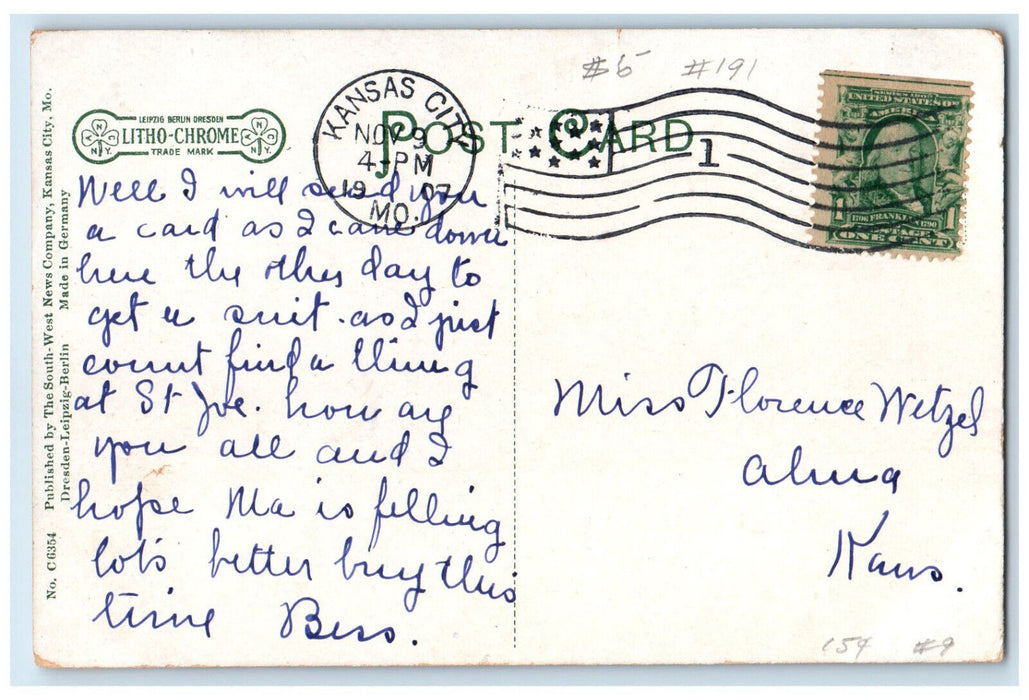 #5 #191
POST CARD
LEIPZIG BERLIN DRESDEN
LITHO-CHROME
TRADE MARK
A M N Y.
A M N Y.
KANSAS CITY
NOV 9
4-PM
1907
MO.
1
UNITED STATES OF
AMERICA
1 1706 FRANKLIN 1790 1
ONE CENT
No. C6354 Published by The South-West News Company, Kansas City, Mo.
Dresden-Leipzig-Berlin Made in Germany
Well I will send you
a card as I came down
here the other day to
get a suit. as I just
count find a thing
at St Joe. how are
you all and I
hope Ma is felling
lots better buy this
time Bess.
Miss Florence Wetzel
Alma
Kans.
15¢ #9